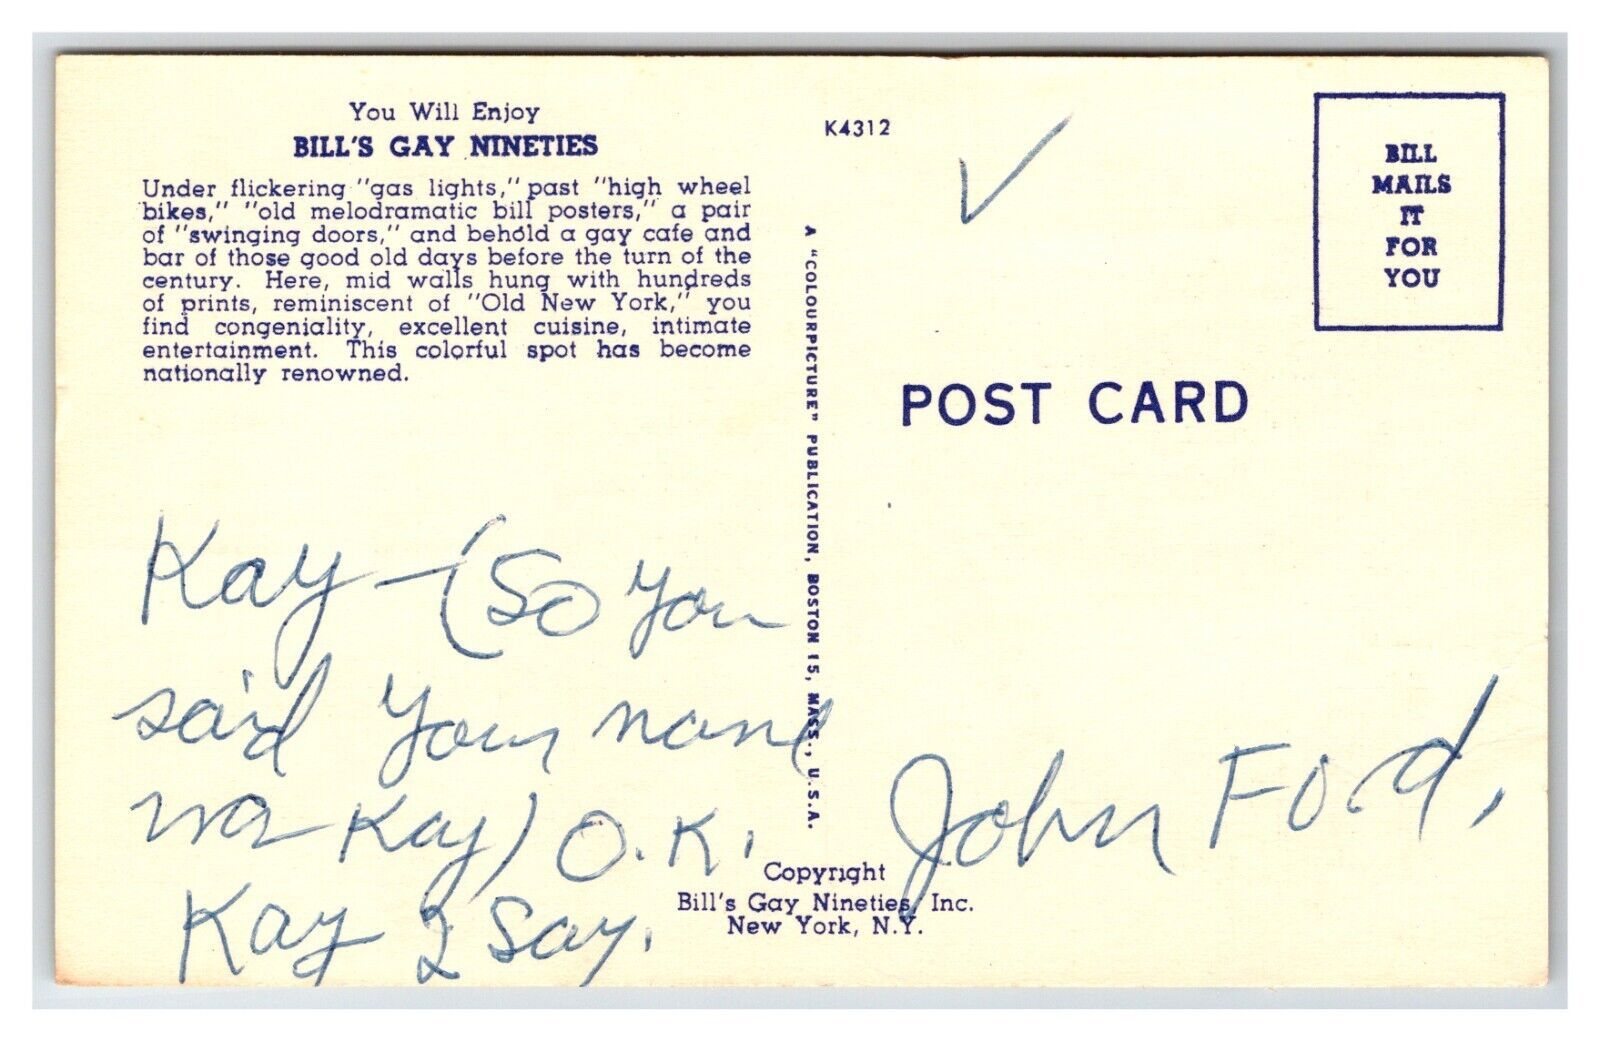 You Will Enjoy
BILL'S GAY NINETIES
Under flickering "gas lights," past "high wheel
bikes," "old melodramatic bill posters," a pair
of "swinging doors," and behold a gay cafe and
bar of those good old days before the turn of the
century. Here, mid walls hung with hundreds
of prints, reminiscent of "Old New York," you
find congeniality, excellent cuisine, intimate
entertainment. This colorful spot has become
nationally renowned.
Kay - (So you
said your name
was Kay) O.K.
Kay I say.
A "COLOURPICTURE" PUBLICATION, BOSTON 15, MASS., U.S.A.
K4312
BILL
MAILS
IT
FOR
YOU
POST CARD
John Ford.
Copyright
Bill's Gay Nineties, Inc.
New York, N.Y.